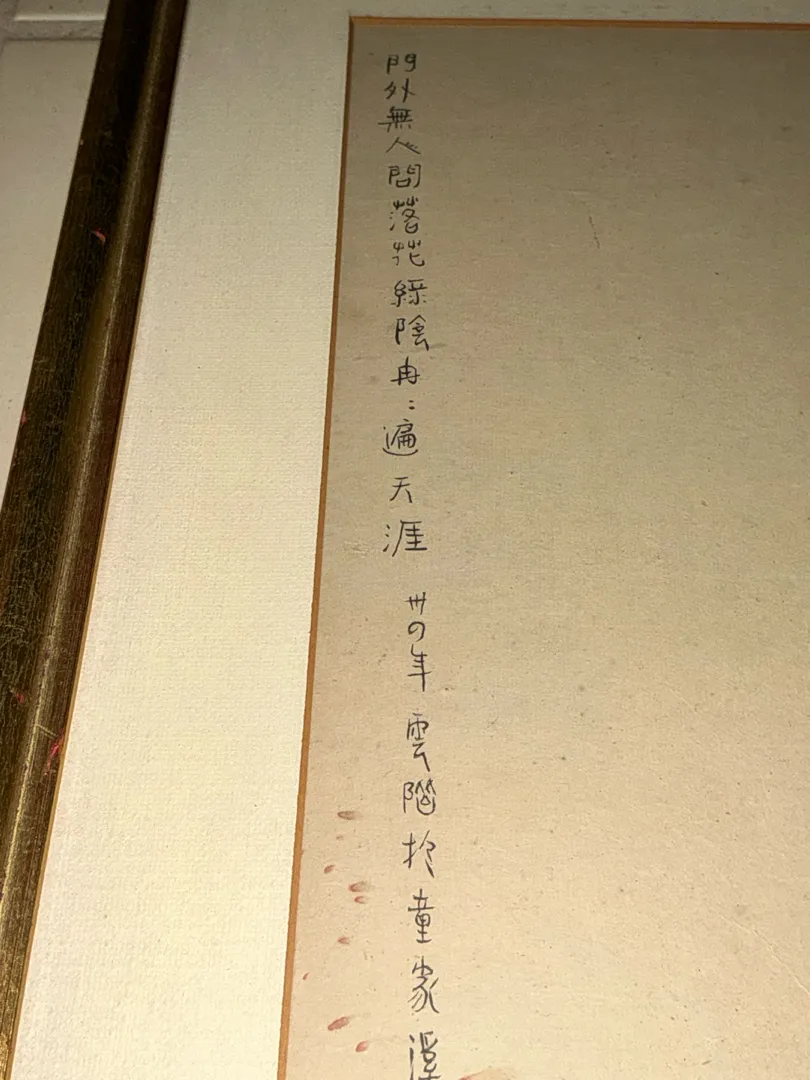 門外無人問落花綠陰冉〻遍天涯 卅四年雲階於童家溪